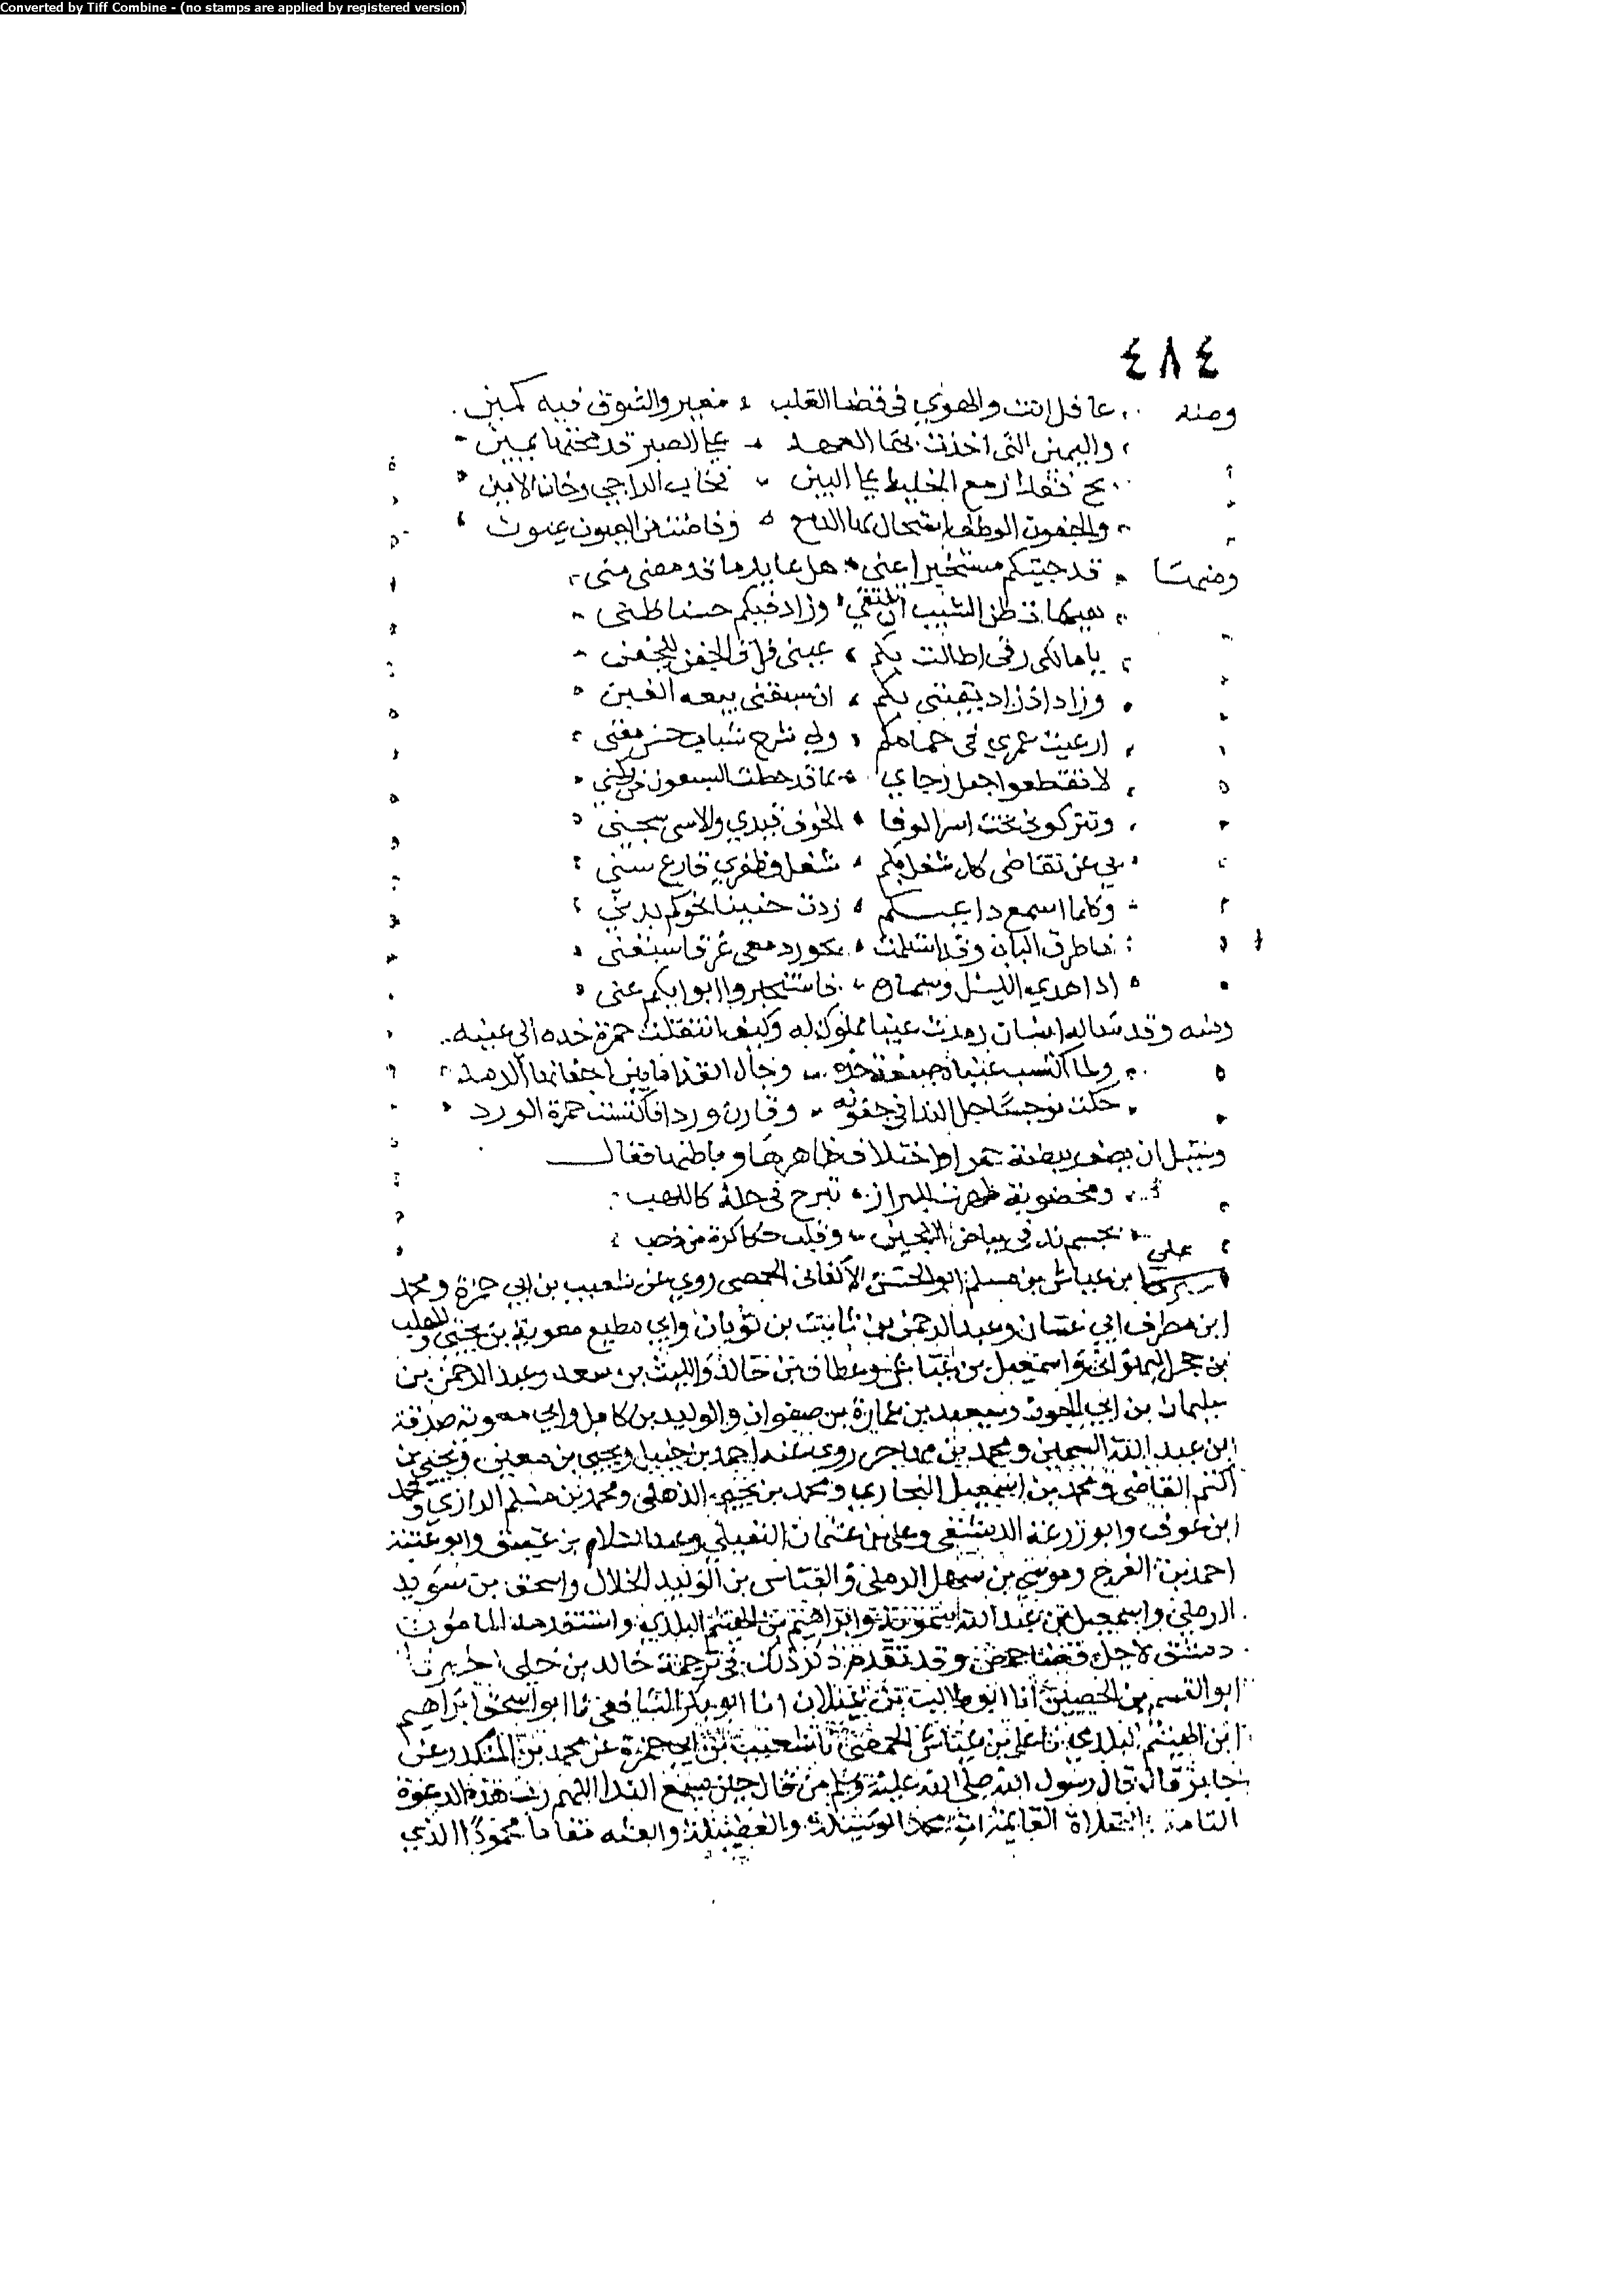 Converted by Tiff Combine - (no stamps are applied by registered version)
٤٨٤
ومنه غافل انت والهوي في فضا القلب مغير والشوق فيه كمين
واليمين التي اخذت بها العهد على الصبر قد محتها يمين
ازمع الخليط على البين فخاب الراجي وخان الامين
والجفون الدمع وفاضت من العيون عيون
ومنها قد جيتكم مستخبرا عني هل عايد ما قد مضى مني
ظن الشيب وزاد فيكم حسنا ظني
يا مالكي رقي اطالت بكم عيني فراق الجفن للجفن
وزاد اذ زاد بكم ان سبقتني بيعه الغبن
ارعيت عمري في حماكم ولي شرخ شباب حسن
لا تقطعوا رجاي ما قد حطت السبعون من ركني
وتتركوني تحت اسر الوفا الخوف قيدي والاسى سجني
بي عن تقاضي كل شغل بكم شغل وظفري قارع سني
وكلما اسمع داعيكم زدت حنينا نحوكم
البان وقد
اذا هدي الليل فاستخبروا ابوابكم عني
ومنه وقد ساله انسان رمدت عينا مملوك له وكيف انتقلت حمرة خده الى عينيه
ولما اكتست عيناه صبغة خده وجال القذا ما بين اجفانها الرمد
حكت نرجسا حل الندا في جفونه وقارن وردا فاكتست حمرة الورد
وسئل ان يصف بيضة اختلاف ظاهرها وباطنها فقال
ومخضوبة ظهرت للبراز تبرح في حلة كاللهب
بجسم في بياض اللجين وقلب حكا كرة من ذهب
علي
ابن عياش بن مسلم ابو الحسن الالهاني الحمصي روي عن شعيب بن ابي حمزة ومحمد
ابن مطرف ابي غسان وعبد الرحمن بن ثابت بن ثوبان وابي مطيع معوية بن يحيى والمهلب
بن حجر البهراني واسمعيل بن عياش وعطاف بن خالد والليث بن سعد وعبد الرحمن بن
سليمان بن ابي الجون وسعيد بن عمارة بن صفوان والوليد بن كامل وابي معوية صدقة
ابن عبد الله السمين ومحمد بن مهاجر روى عنه احمد بن حنبل ويحيى بن معين ويحيى بن
اكثم القاضي ومحمد بن اسمعيل البخاري ومحمد بن يحيى الذهلي ومحمد بن مسلم الرازي ومحمد
ابن عوف وابو زرعة الدمشقي وعلي بن عثمان النفيلي وعبد السلام بن عتيق وابو عتبة
احمد بن الفرج وموسى بن سهل الرملي والعباس بن الوليد الخلال واسحق بن سويد
الرملي واسمعيل بن عبد الله سمويه وابراهيم بن الهيثم البلدي واستقدمه المامون
دمشق لاجل قضا حمص وقد تقدم ذكر ذلك في ترجمة خالد بن خلي اخبرنا
ابو القسم بن الحصين انا ابو طالب بن غيلان انا ابو بكر الشافعي نا ابو اسحق ابراهيم
ابن الهيثم البلدي نا علي بن عياش الحمصي نا شعيب بن ابي حمزة عن محمد بن المنكدر عن
جابر قال قال رسول الله صلى الله عليه وسلم من قال حين يسمع الندا اللهم رب هذه الدعوة
التامة والصلاة القايمة ات محمدا الوسيلة والفضيلة وابعثه مقاما محمودا الذي